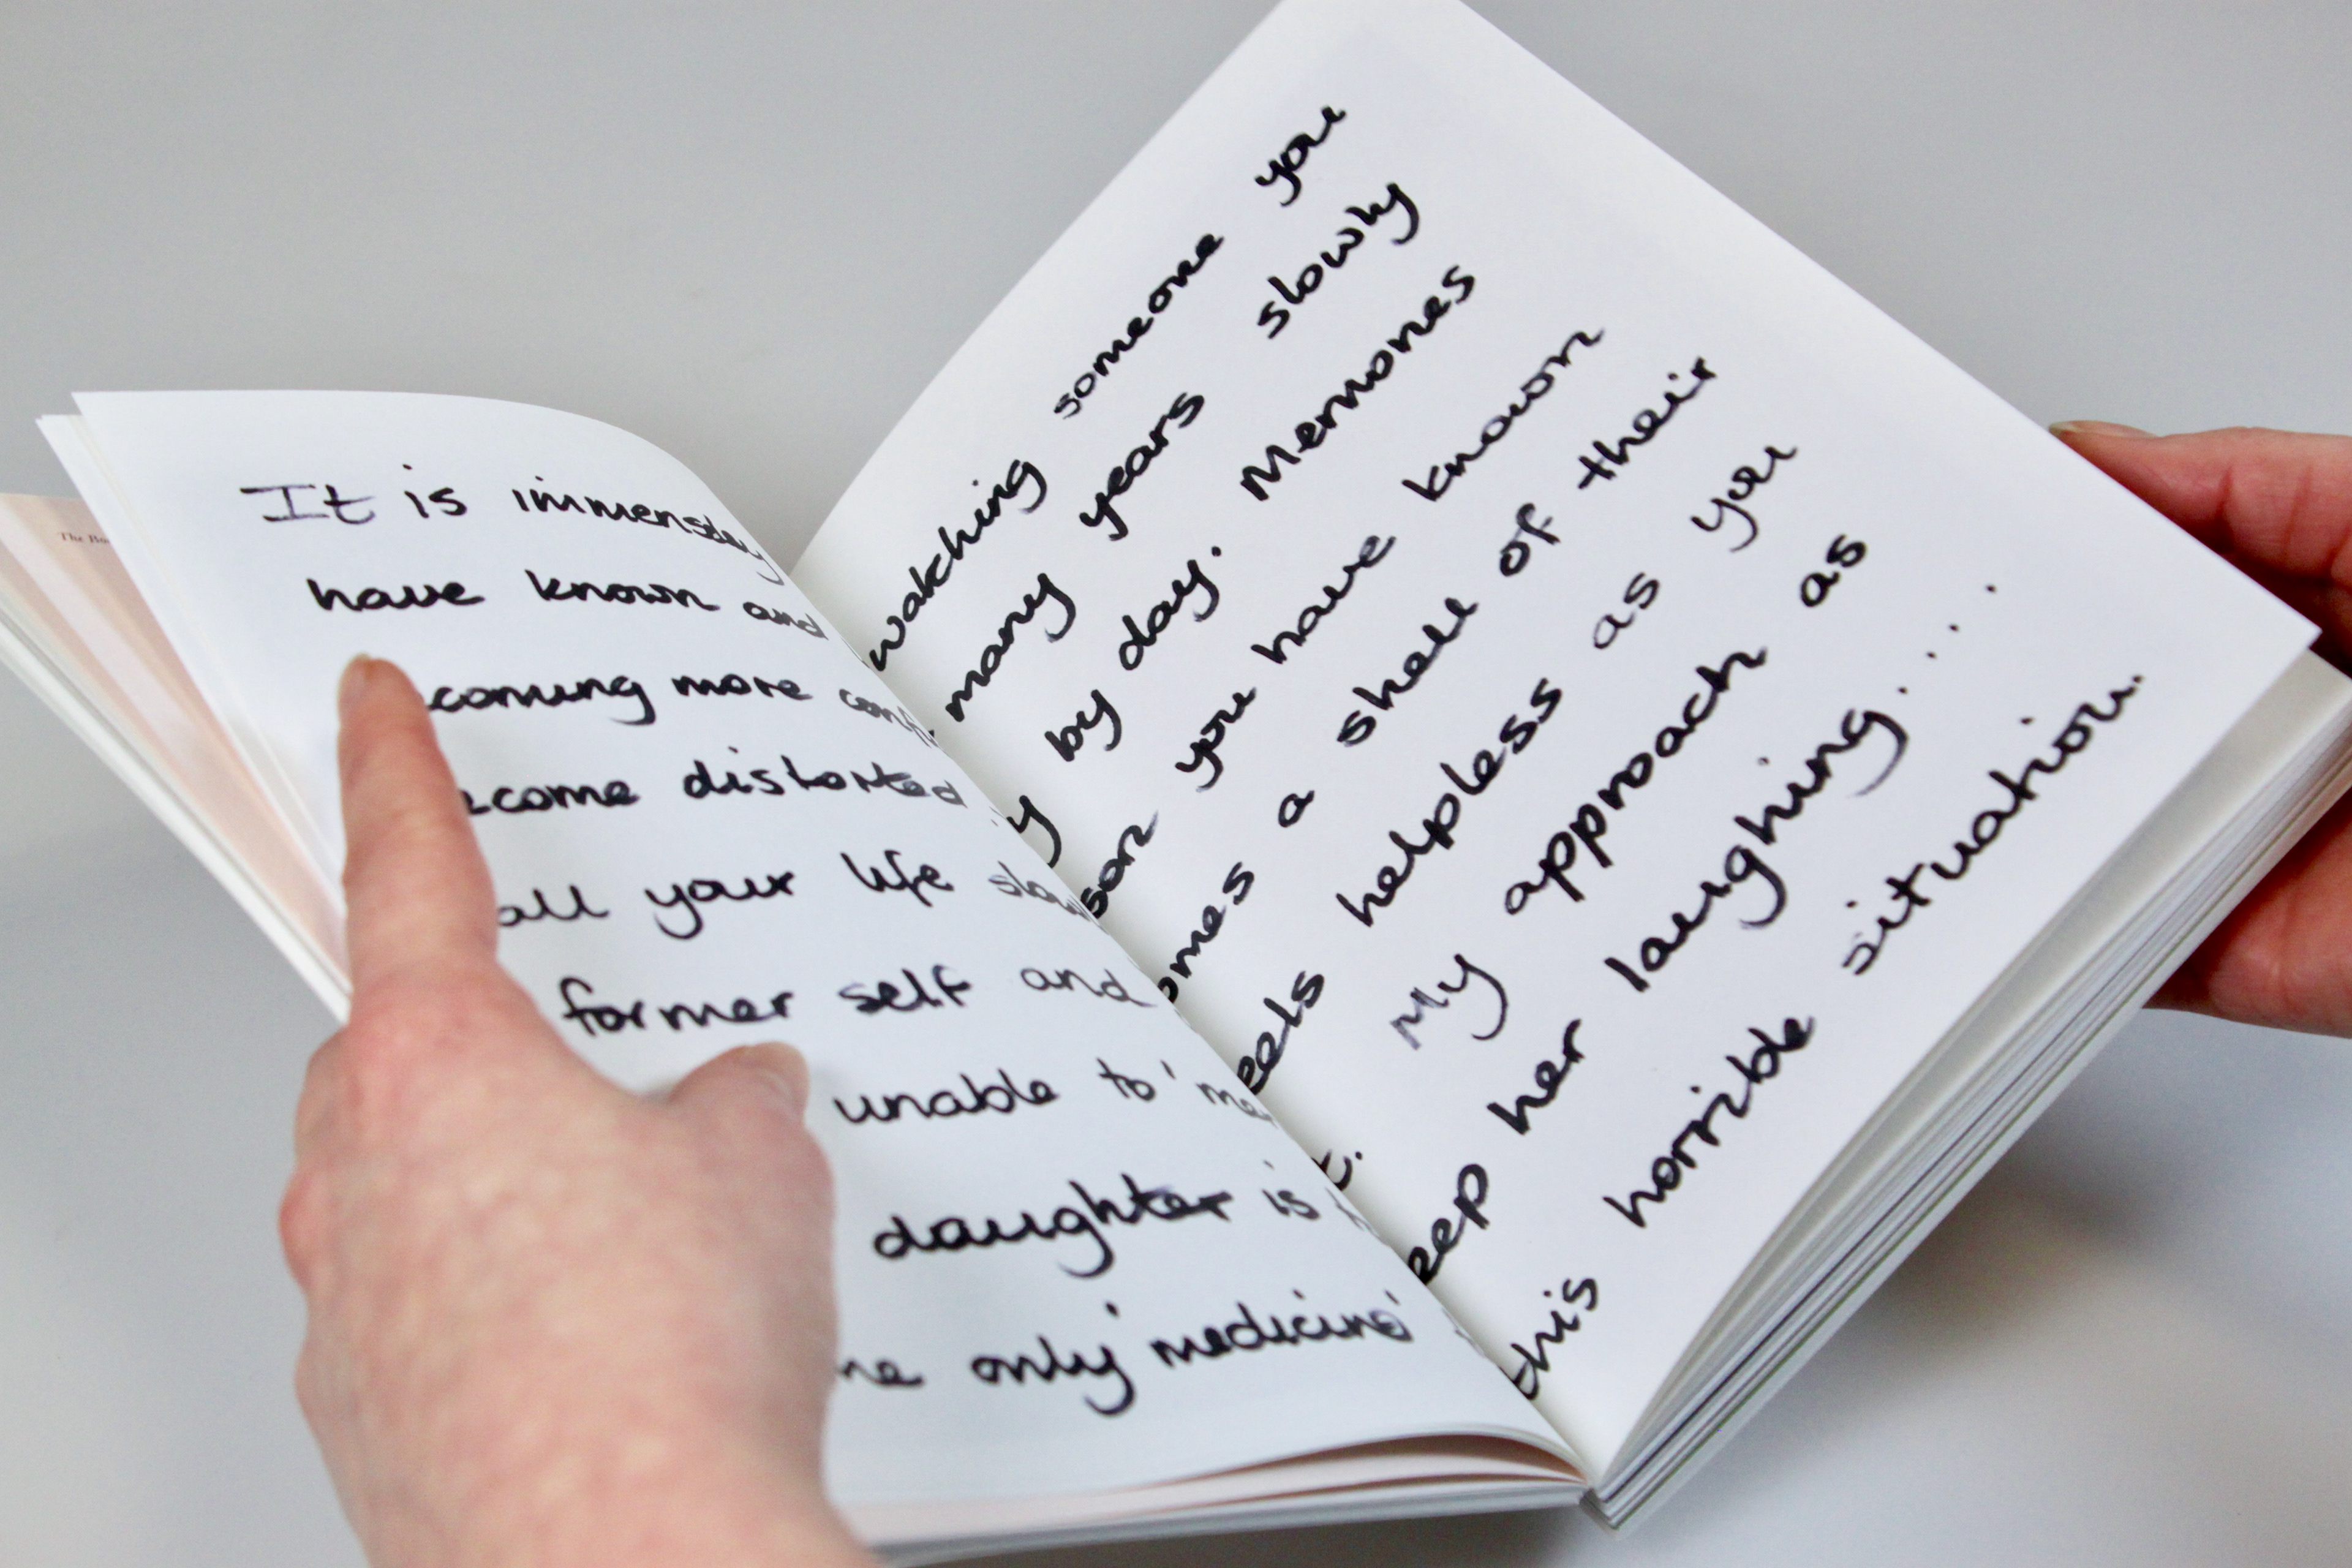 The
It is immensely
have known and
more
distorted
all your life
former self and
unable to
daughter is
only 'medicine'
watching someone you
many years slowly
by day. Memories
you have known
a shell of their
helpless as you
My approach as
her laughing....
this horrible situation.